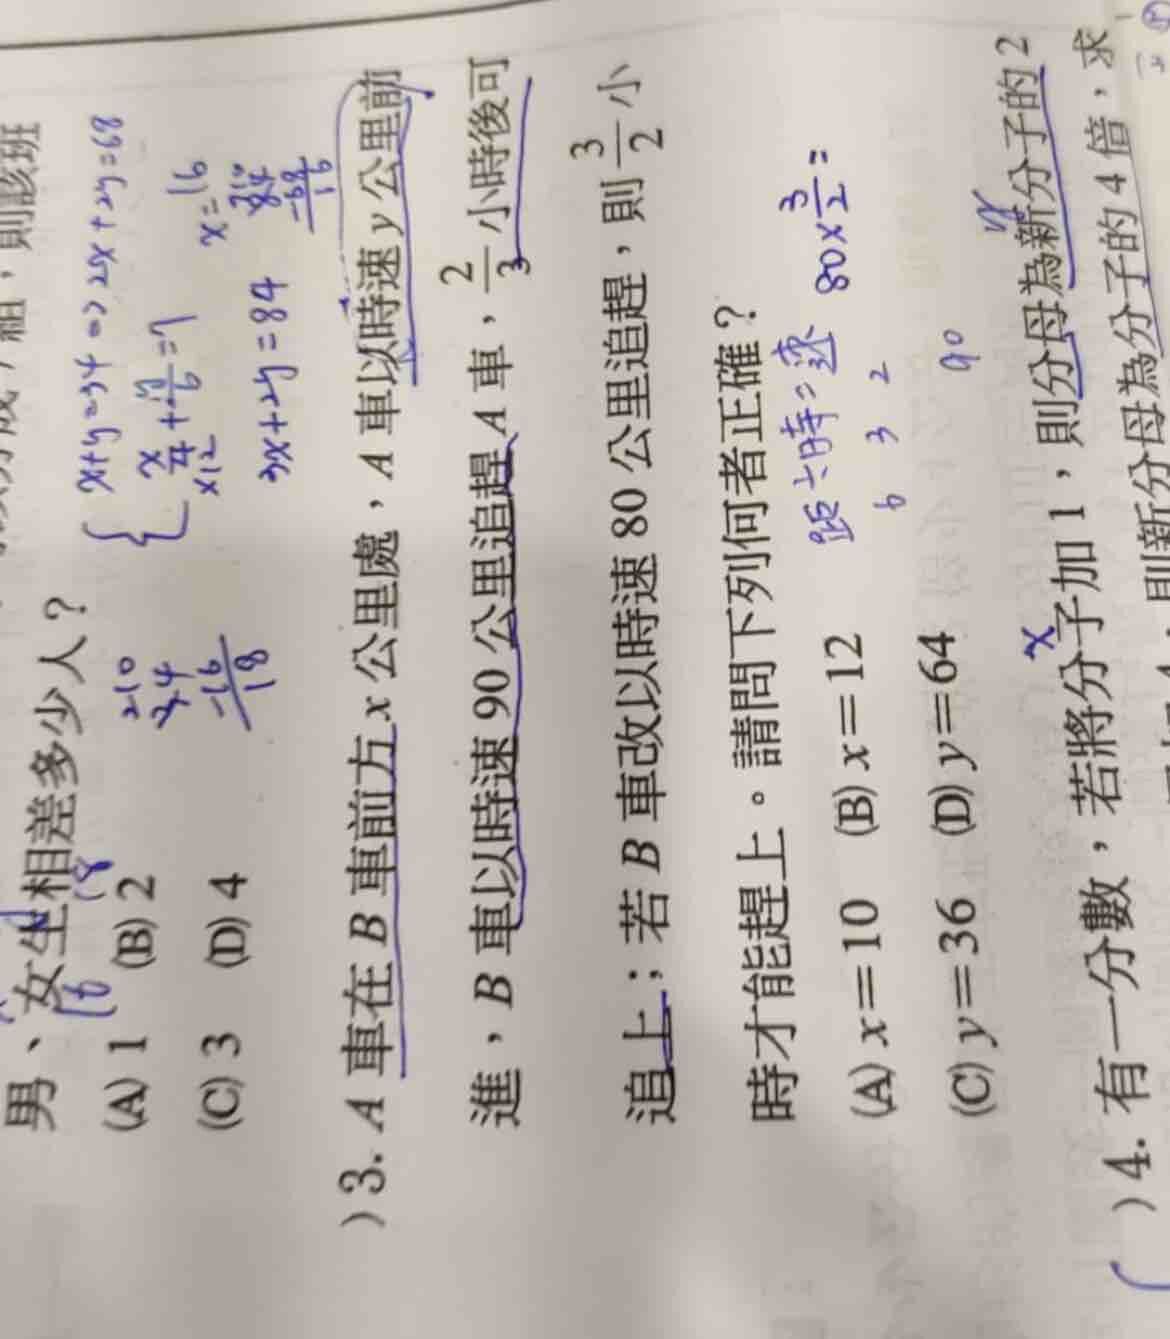 則該班
男、女生相差多少人?
16 18
(A) 1 (B) 2
(C) 3 (D) 4
x+y=34 => 2x+2y=68
x/4+y/6=7
x12
3x+2y=84
x=16
84
-68
16
34
-16
18
)3. A 車在 B 車前方 x 公里處,A 車以時速 y 公里前
進,B 車以時速 90 公里追趕 A 車,2/3 小時後可
追上;若 B 車改以時速 80 公里追趕,則 3/2 小
時才能趕上。請問下列何者正確?
距÷時=速 80×3/2=
6 3 2
(A) x=10 (B) x=12
(C) y=36 (D) y=64
90
)4. 有一分數,若將分子加 1,則分母為新分子的 2
x
分母為分子的 4 倍,求